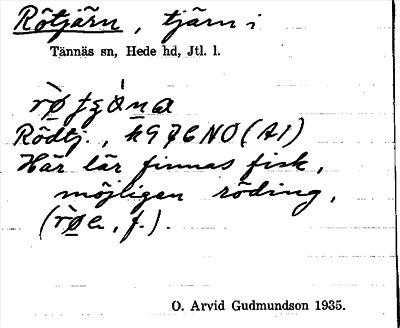 Rötjärn, tjärn i
Tännäs sn, Hede hd, Jtl. l.
Rödtj., k9 NO (A1)
Här lär finnas fisk,
möjligen röding,
O. Arvid Gudmundson 1935.